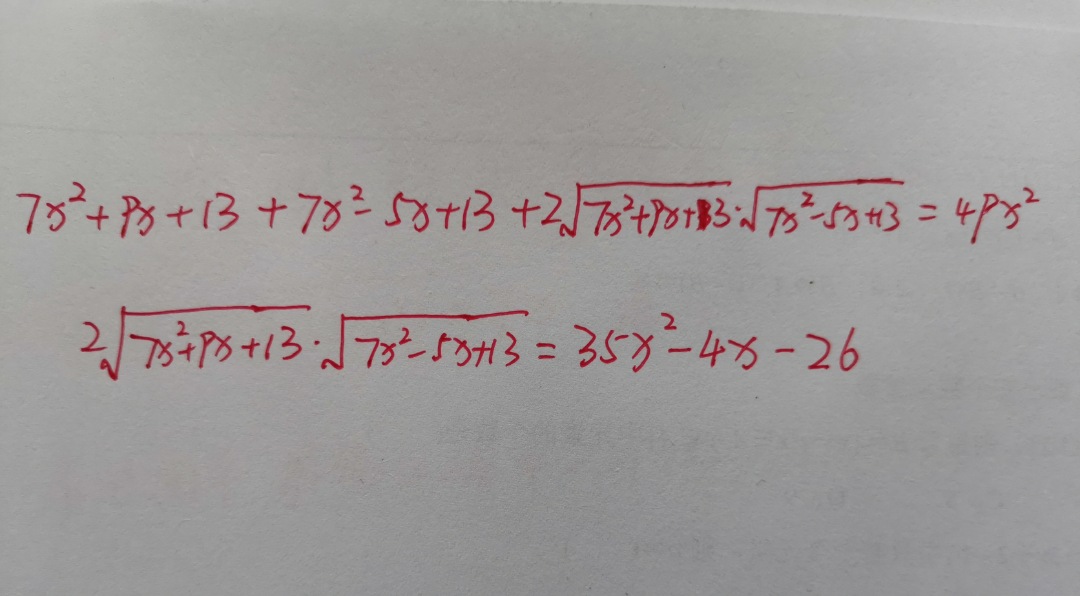 7x²+9x+13+7x²-5x+13+2√(7x²+9x+13)·√(7x²-5x+13)=49x²
2√(7x²+9x+13)·√(7x²-5x+13)=35x²-4x-26